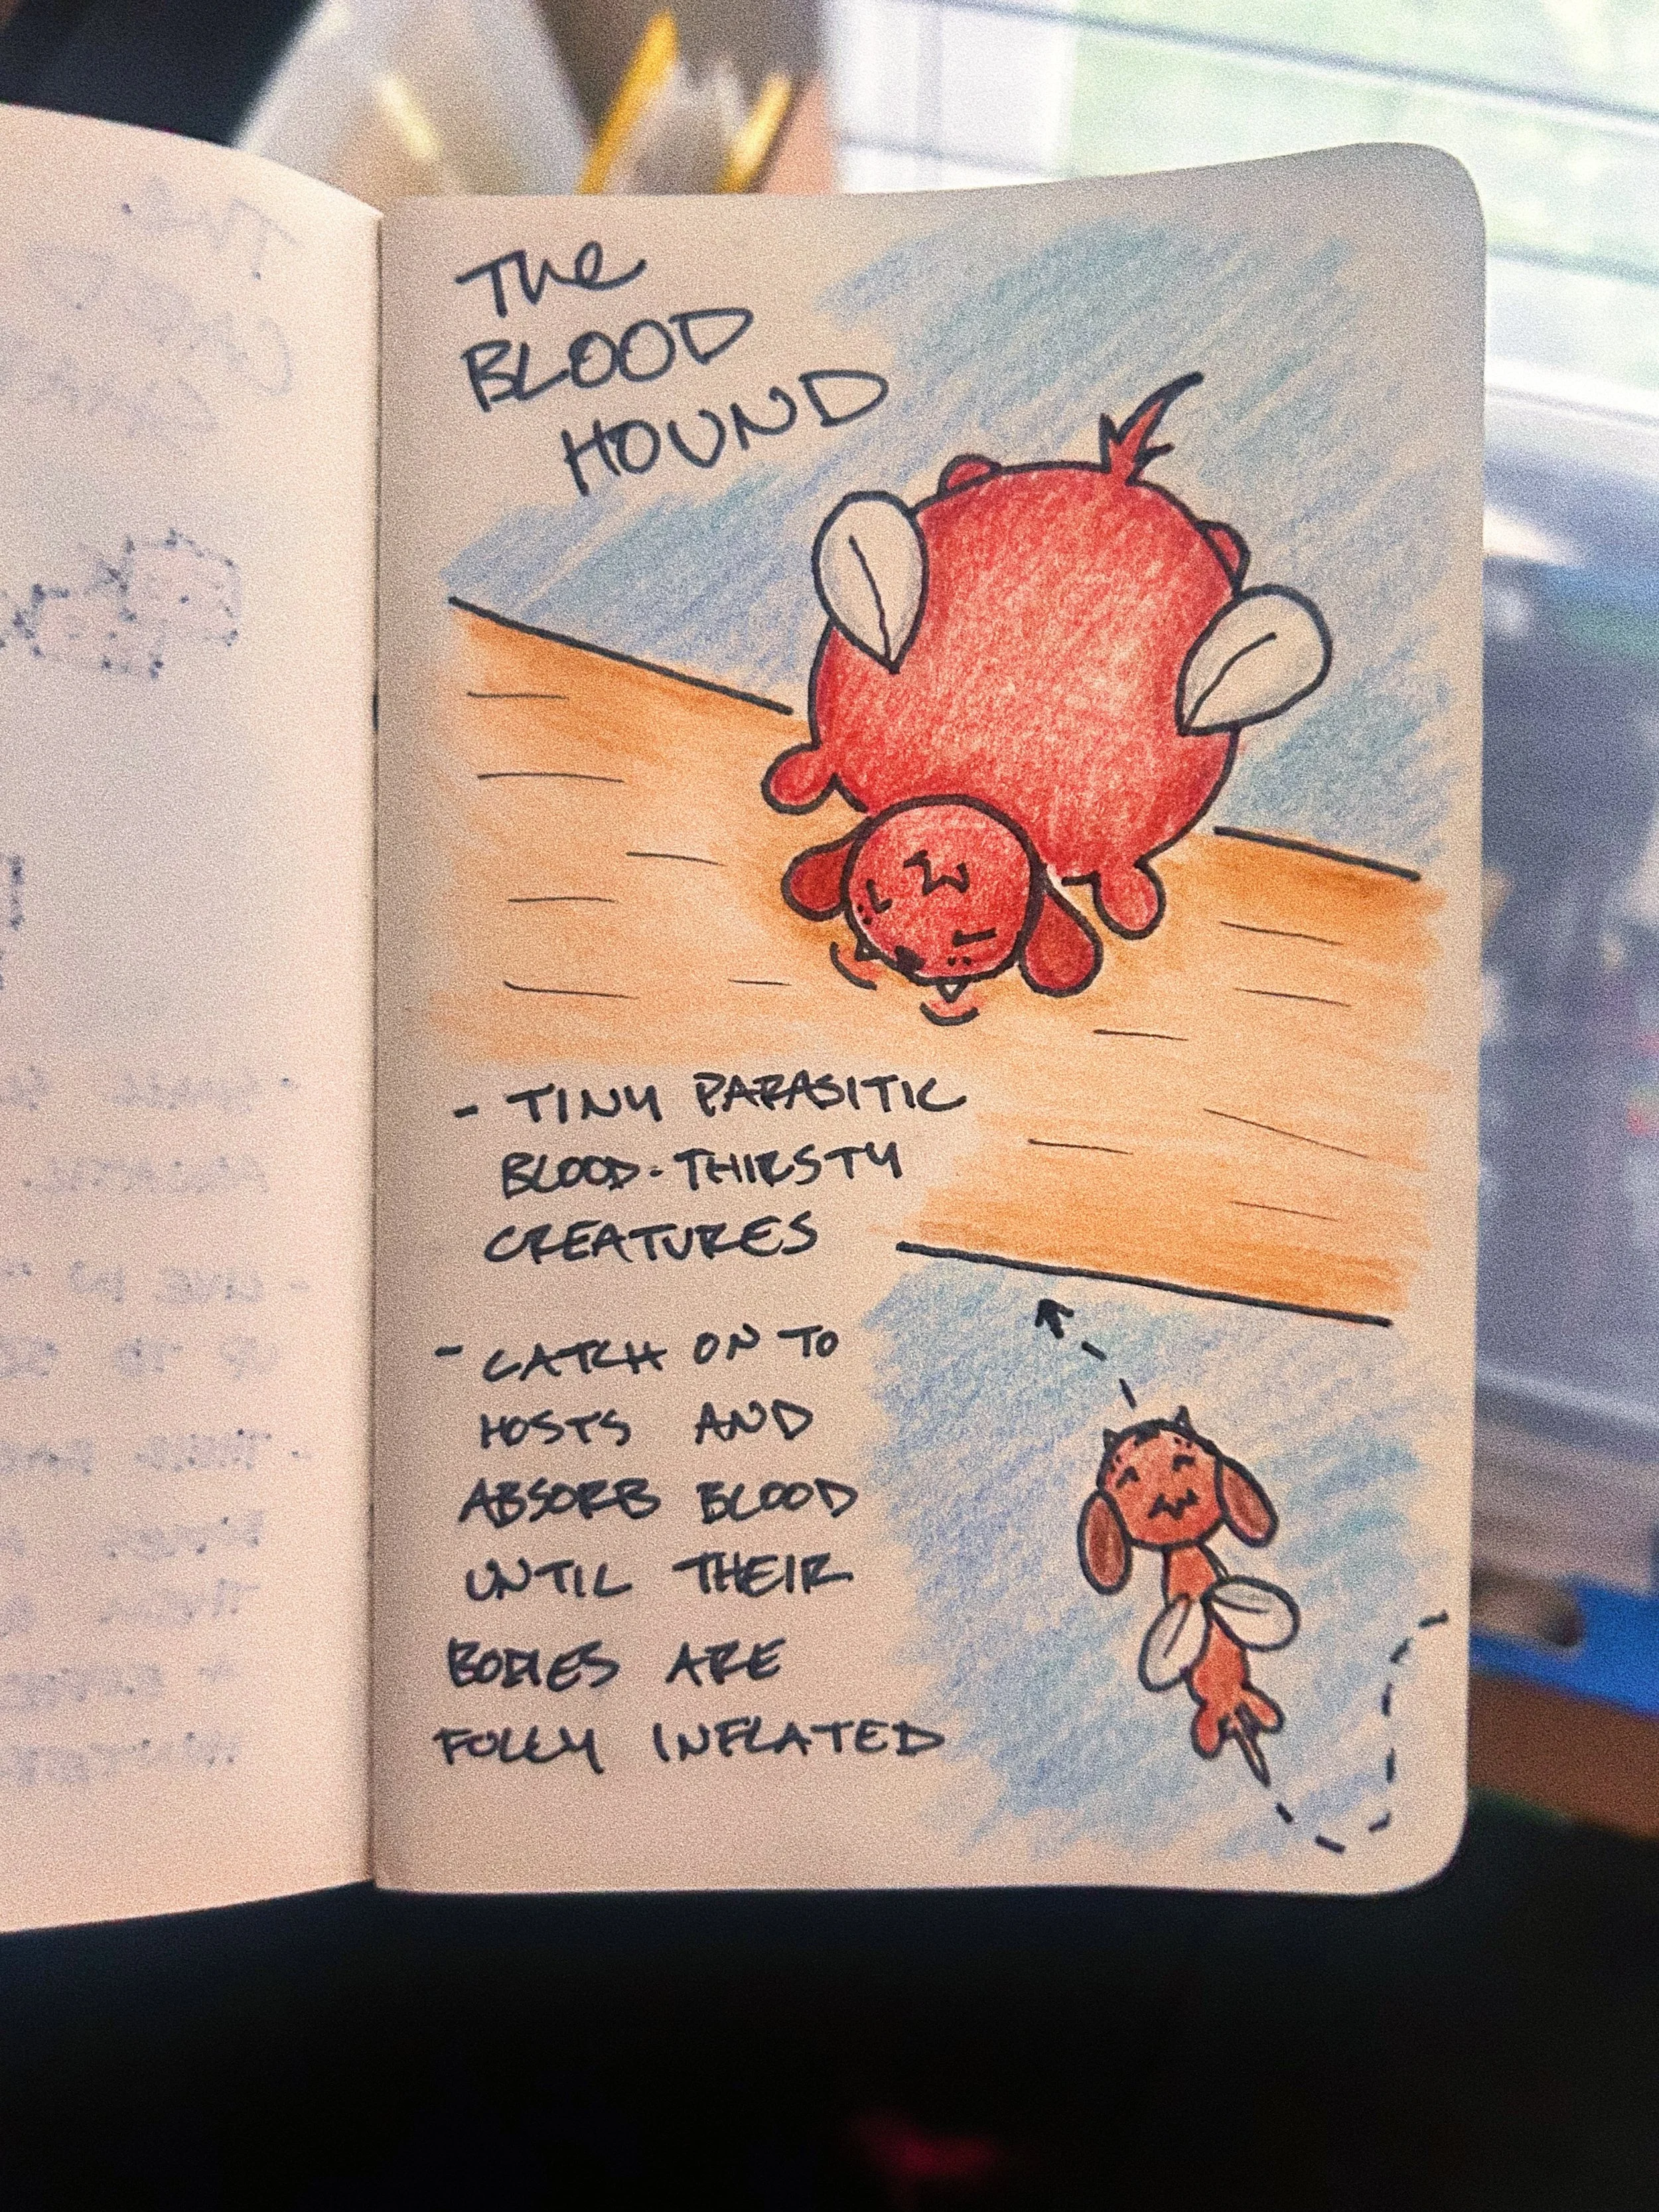 The
BLOOD
HOUND
- TINY PARASITIC
BLOOD-THIRSTY
CREATURES
- CATCH ON TO
HOSTS AND
ABSORB BLOOD
UNTIL THEIR
BODIES ARE
FULLY INFLATED